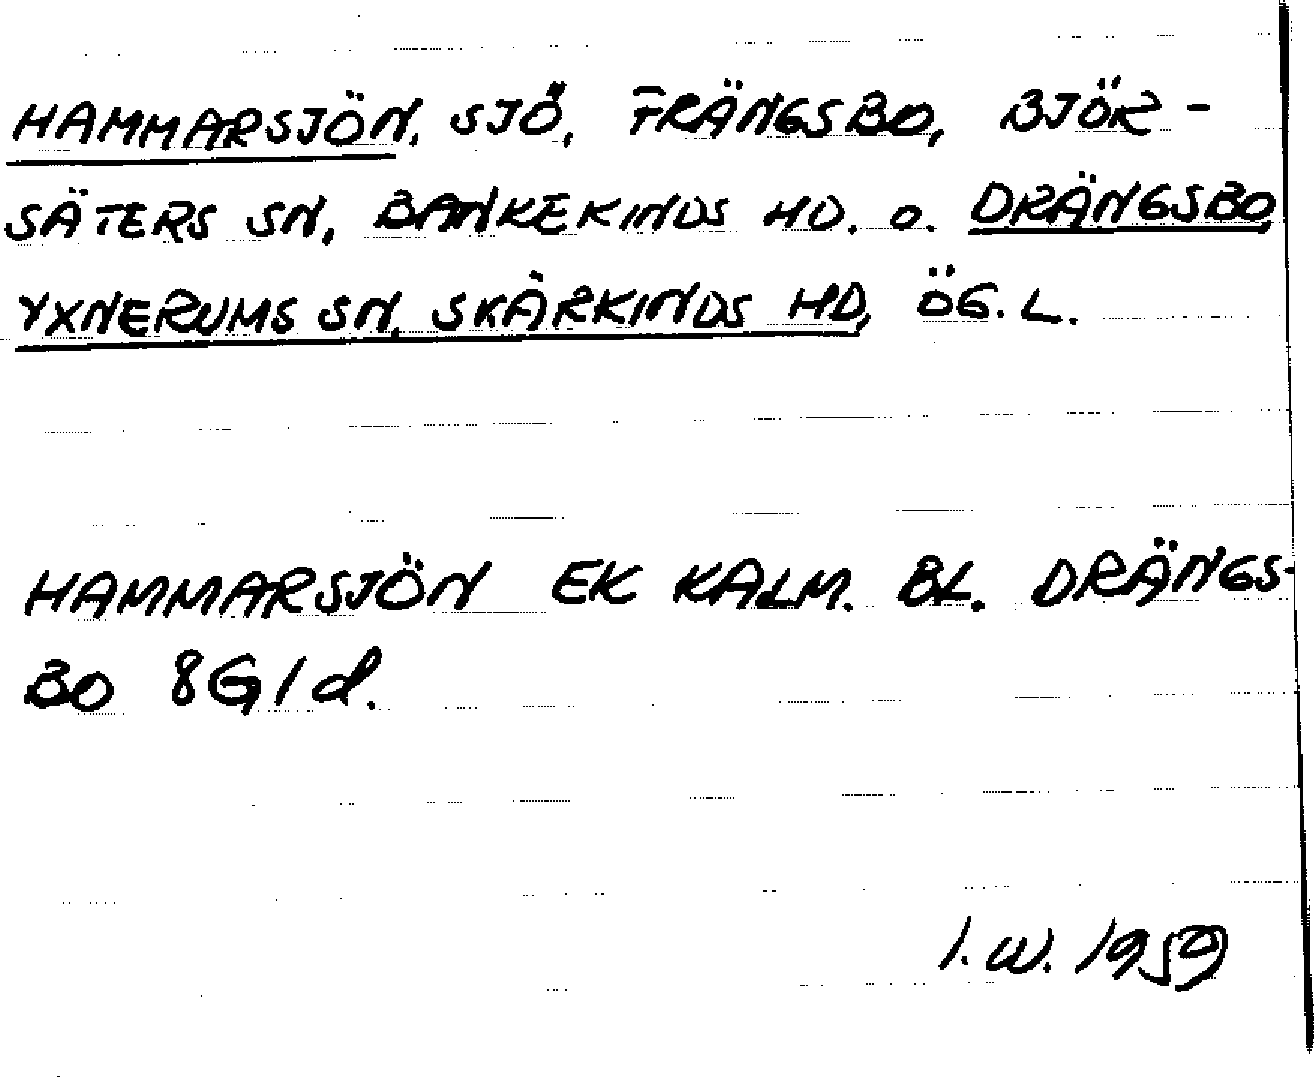 HAMMARSJÖN, SJÖ, FRÄNGSBO, BJÖR-
SÄTERS SN, BANKEKINDS HD. O. DRÄNGSBO,
YXNERUMS SN, SKÄRKINDS HD, ÖG. L.
HAMMARSJÖN EK KALM. BL. DRÄNGS-
BO 8G1d.
I. W. 1959